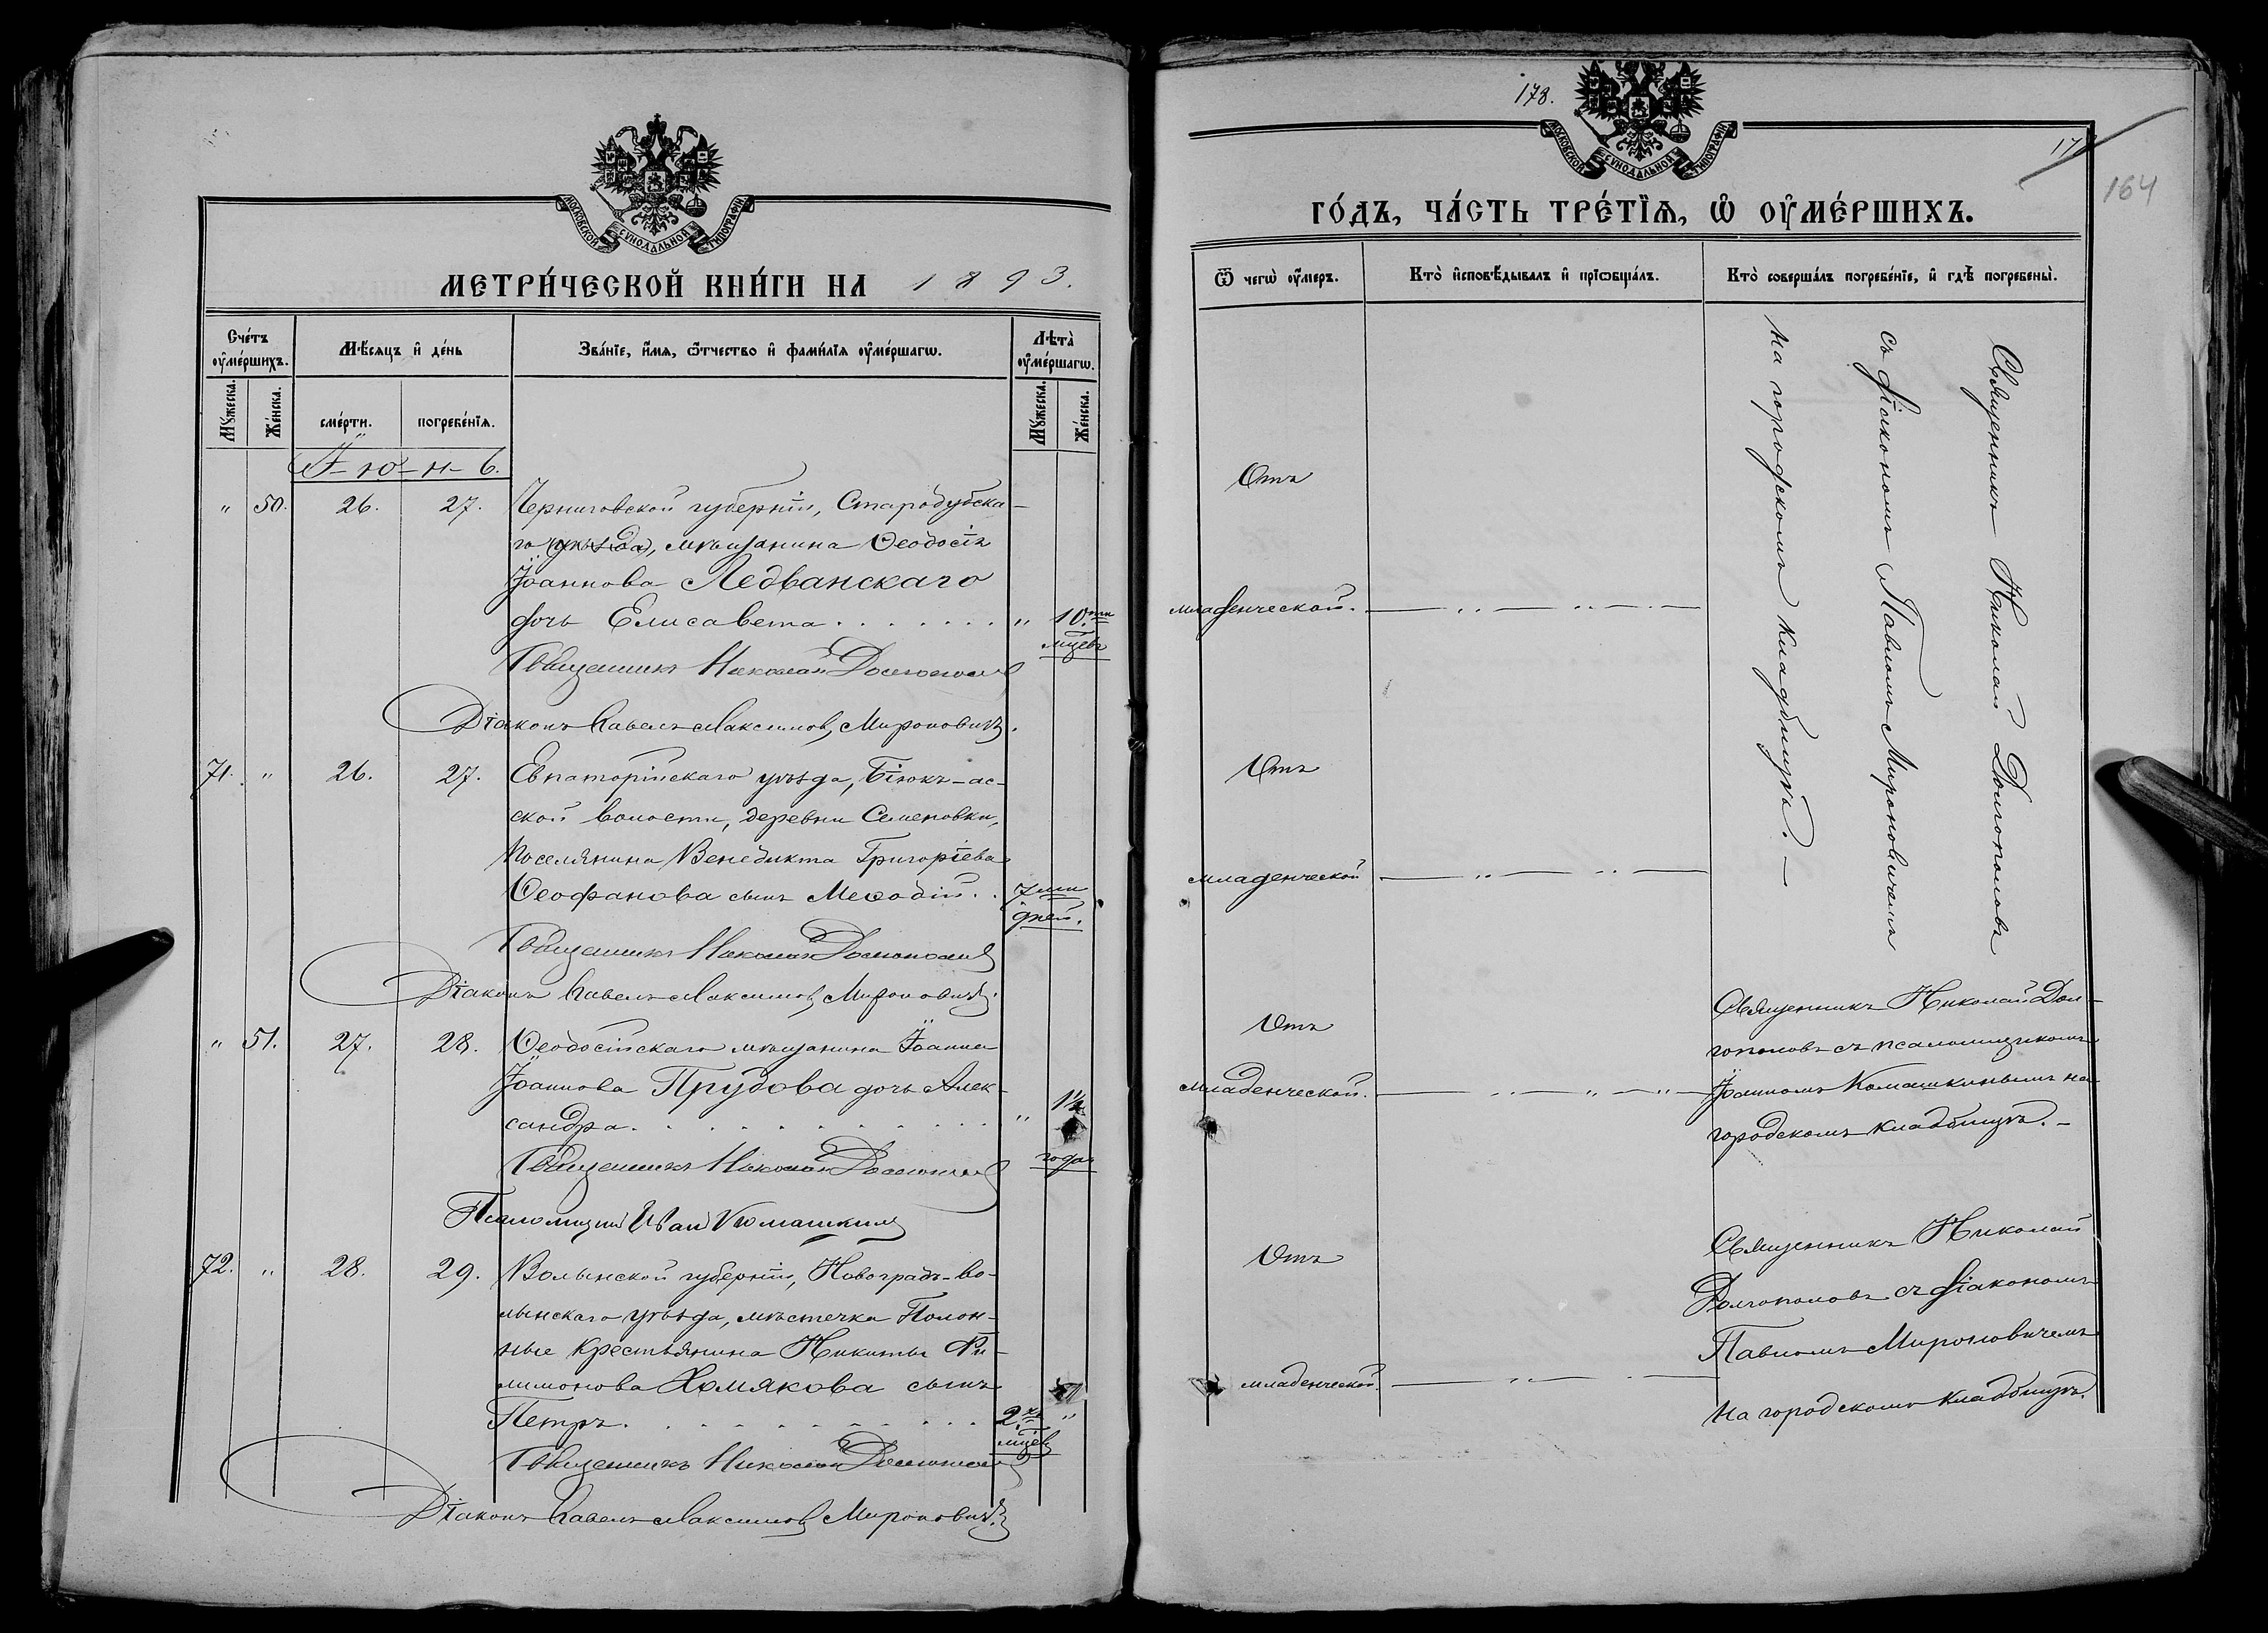 МОСКОВСКОЙ СѴНОДАЛЬНОЙ ТИПОГРАФІИ
МЕТРИ́ЧЕСКОЙ КНИ́ГИ НА 1893.
Сче́тъ ᲂу҆ме́ршихъ.
Мѣ́сяцъ и҆ де́нь
Зва́нїе, и҆́мѧ, ѻ҆́тчество и҆ фами́лїѧ ᲂу҆ме́ршагѡ.
Лѣта̀ ᲂу҆ме́ршагѡ.
Мꙋ́жеска.
Же́нска.
сме́рти.
погребе́нїѧ.
Мꙋ́жеска.
Же́нска.
І-ю-н-ь.
" 50. 26. 27. Черниговской губерніи, Стародубска-
го (уѣзда), мѣщанина Ѳеодосія
Іоаннова Ледванскаго
дочь Елисавета . . . . . . . " 10.ти
мцевъ
Священникъ Николай Долгополовъ
Діаконъ Павелъ Максимовъ Мироновичъ.
71. " 26. 27. Евпаторійскаго уѣзда, Біюкъ-ас-
ской волости, деревни Семеновки,
поселянина Венедикта Григоріева
Ѳеофанова сынъ Меѳодій. . 7ми
дней.
Священникъ Николай Долгополовъ
Діаконъ Павелъ Максимовъ Мироновичъ.
" 51. 27. 28. Ѳеодосійскаго мѣщанина Іоанна
Іоаннова Прудова дочь Алек-
сандра. . . . . . . . . . . " 1½
года
Священникъ Николай Долгополовъ
Псаломщикъ Иван Комашкинъ
72. " 28. 29. Волынской губерніи, Новоградъ-во-
лынскаго уѣзда, мѣстечка Полон-
ные крестьянина Никиты Фи-
лимонова Хомякова сынъ
Петръ. . . . . . . . . . . 2.хъ "
мцевъ
Священникъ Николай Долгополовъ
Діаконъ Павелъ Максимовъ Мироновичъ.
178.
МОСКОВСКОЙ СѴНОДАЛЬНОЙ ТИПОГРАФІИ
164
ГО́ДЪ, ЧА́СТЬ ТРЕ́ТЇѦ, Ѡ҆ ОУ҆МЕ́РШИХЪ.
Ѿ чегѡ̀ ᲂу҆́меръ.
Кто̀ и҆сповѣ́дывалъ и҆ прїѡбща́лъ.
Кто̀ соверша́лъ погребе́нїе, и҆ гдѣ̀ погребены̀.
Отъ
младенческой.
Священникъ Николай Долгополовъ
съ діакономъ Павломъ Мироновичемъ
на городскомъ кладбищѣ. –
Отъ
младенческой
Отъ
младенческой.
Священникъ Николай Дол-
гополовъ съ псаломщикомъ
Іоанномъ Комашкинымъ на
городскомъ кладбищѣ. –
Отъ
младенческой.
Священникъ Николай
Долгополовъ съ діакономъ
Павломъ Мироновичемъ
на городскомъ кладбищѣ.